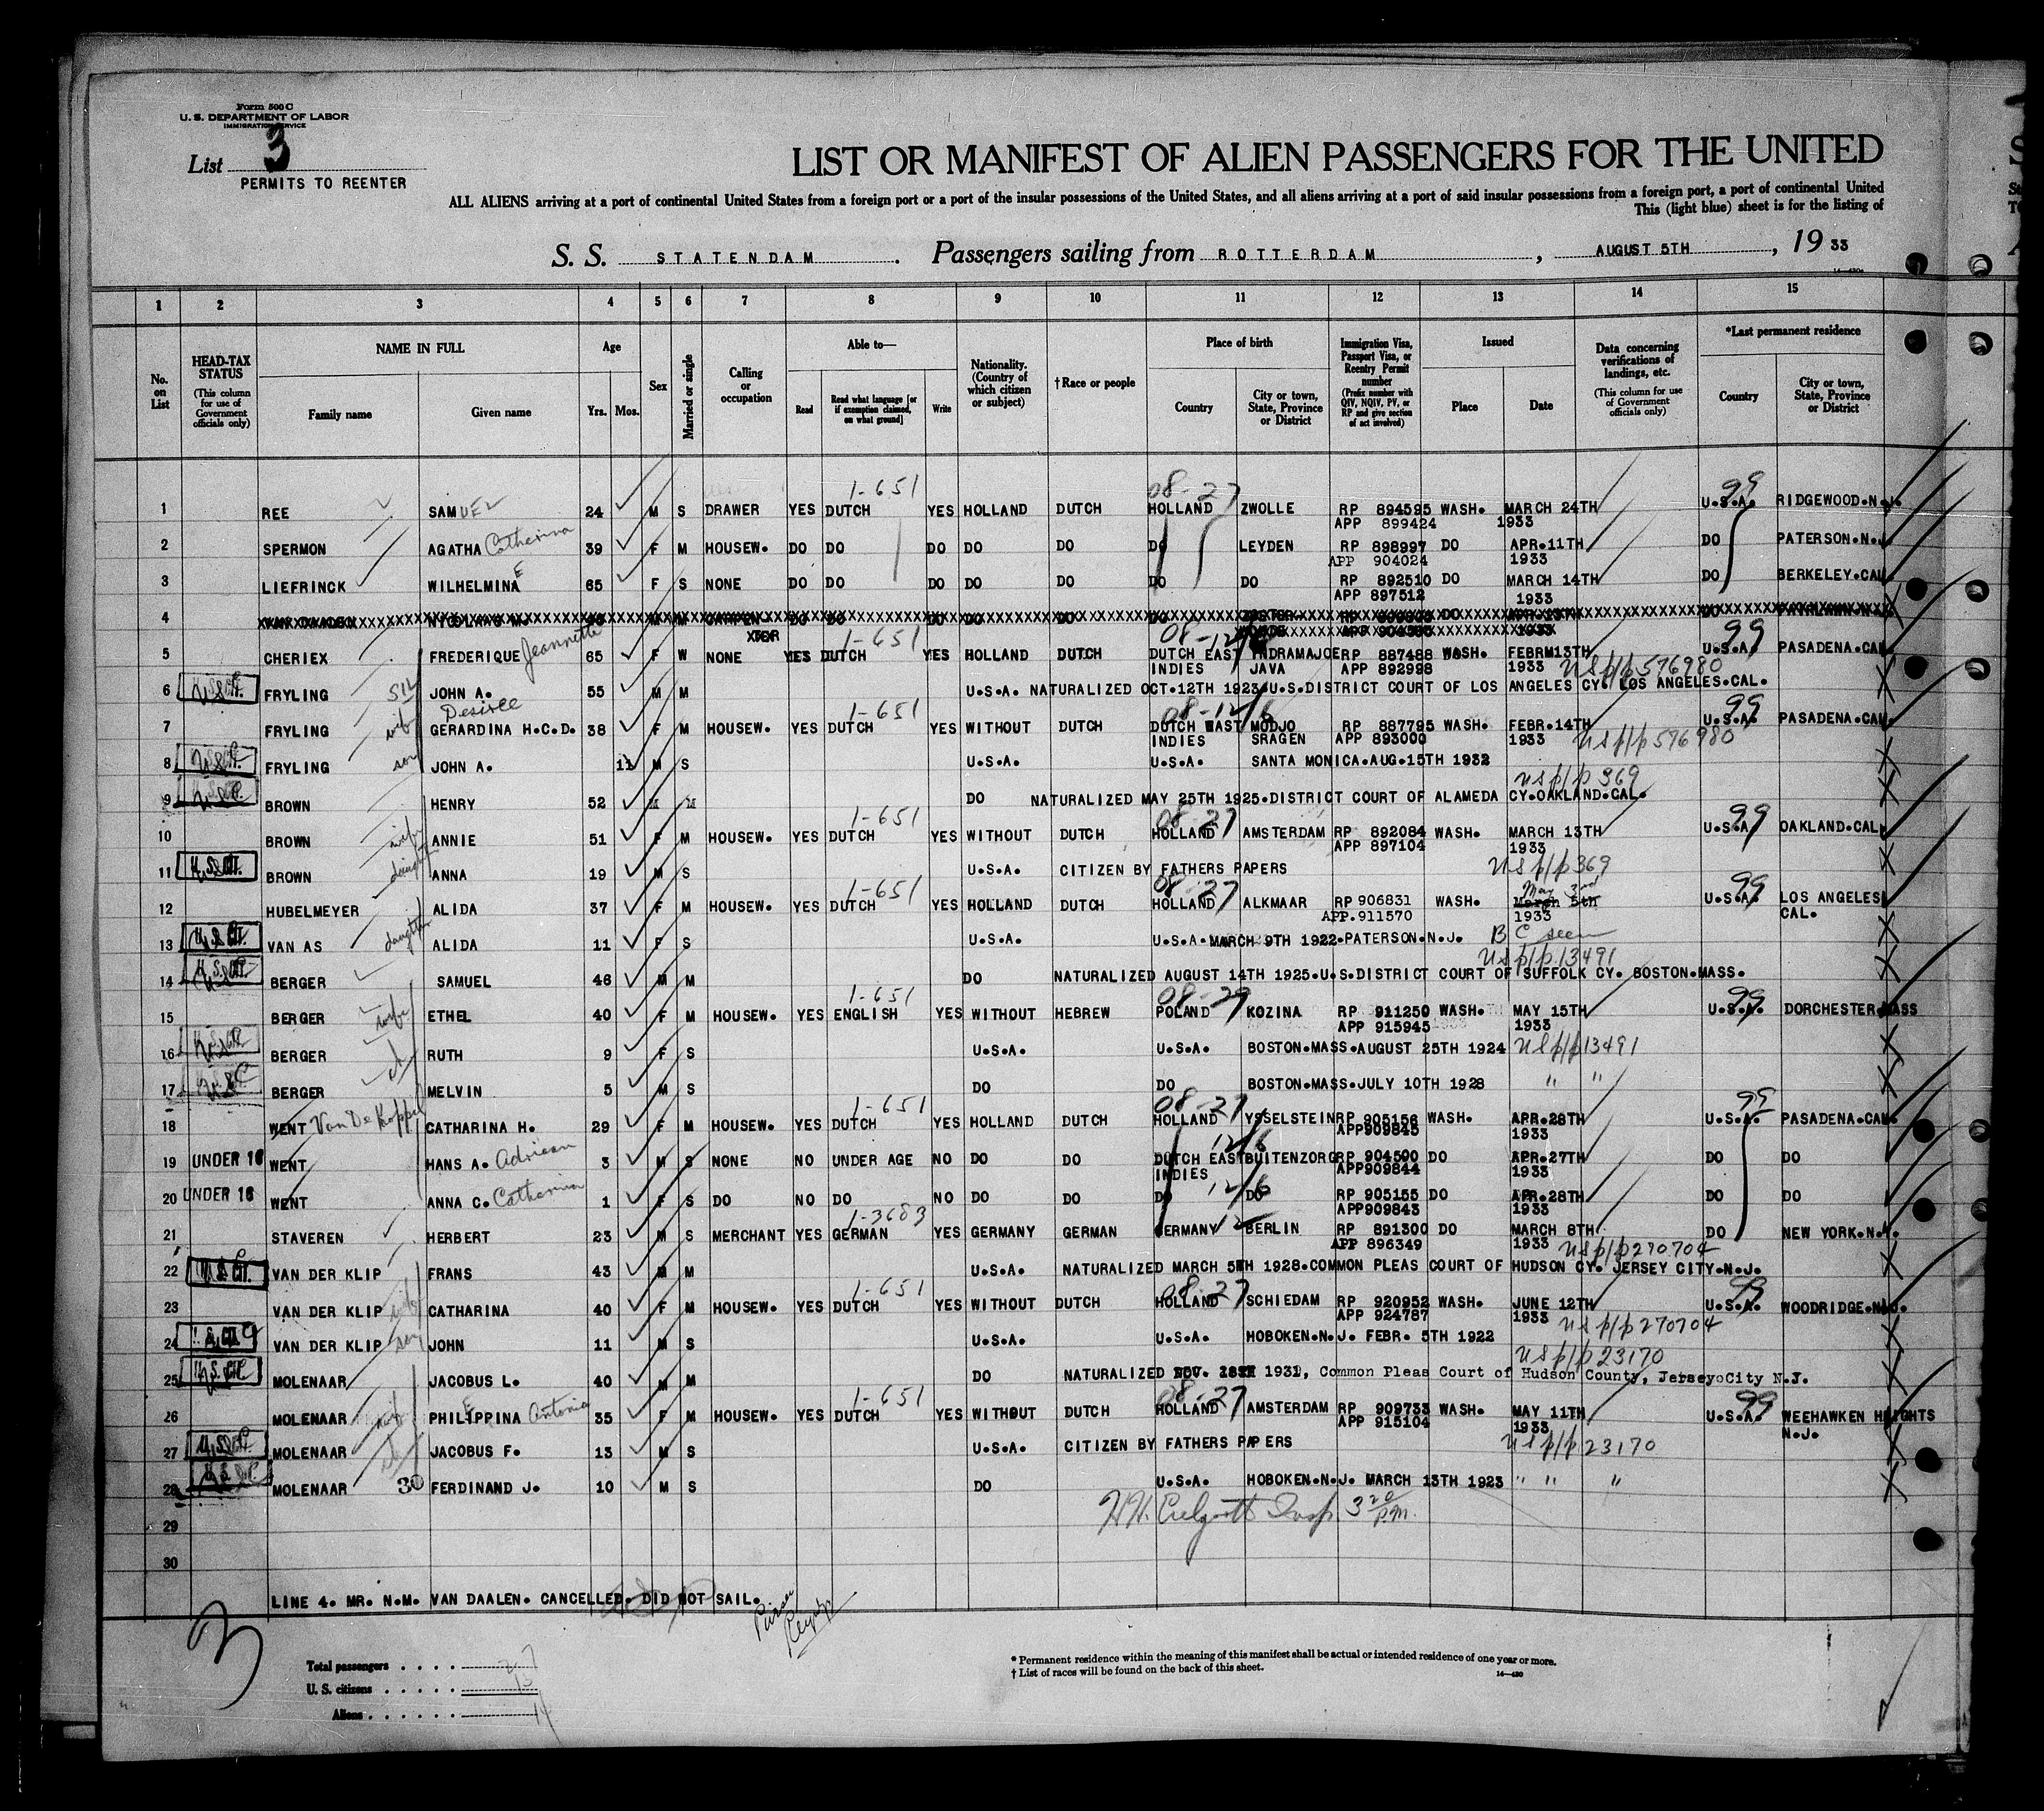 Form 500 C
U. S. DEPARTMENT OF LABOR
IMMIGRATION SERVICE
List 3
PERMITS TO REENTER
LIST OR MANIFEST OF ALIEN PASSENGERS FOR THE UNITED
ALL ALIENS arriving at a port of continental United States from a foreign port or a port of the insular possessions of the United States, and all aliens arriving at a port of said insular possessions from a foreign port, a port of continental United
This (light blue) sheet is for the listing of
S. S. STATENDAM . Passengers sailing from ROTTERDAM , AUGUST 5TH , 19 33
1 2 3 4 5 6 7 8 9 10 11 12 13 14 15
No. on List
HEAD-TAX STATUS (This column for use of Government officials only)
NAME IN FULL
Family name Given name
Age
Yrs. Mos.
Sex
Married or single
Calling or occupation
Able to—
Read Read what language [or if exemption claimed, on what ground] Write
Nationality. (Country of which citizen or subject)
† Race or people
Place of birth
Country City or town, State, Province or District
Immigration Visa, Passport Visa, or Reentry Permit number (Prefix number with QIV, NQIV, PV, or RP and give section of act involved)
Issued
Place Date
Data concerning verifications of landings, etc. (This column for use of Government officials only)
*Last permanent residence
Country City or town, State, Province or District
1-651 08-27 99
1 REE SAMUEL 24 M S DRAWER YES DUTCH YES HOLLAND DUTCH HOLLAND ZWOLLE RP 894595 WASH. MARCH 24TH U.S.A. RIDGEWOOD.N.J.
APP 899424 1933
2 SPERMON AGATHA Catherina 39 F M HOUSEW. DO DO DO DO DO DO LEYDEN RP 898997 DO APR.11TH DO PATERSON.N.J.
APP 904024 1933
3 LIEFRINCK WILHELMINA E 65 F S NONE DO DO DO DO DO DO DO RP 892510 DO MARCH 14TH DO BERKELEY.CAL.
APP 897512 1933
4
1-651 08-12/6 99
5 CHERIEX FREDERIQUE Jeannette 65 F W NONE YES DUTCH YES HOLLAND DUTCH DUTCH EAST INDRAMAJOE RP 887488 WASH. FEBR.13TH U.S.A. PASADENA.CAL.
INDIES JAVA APP 892998 1933 US p/p 576980
6 FRYLING JOHN A. 55 M M U.S.A. NATURALIZED OCT.12TH 1923.U.S.DISTRICT COURT OF LOS ANGELES CY. LOS ANGELES.CAL.
Desiree 1-651 08-12/6 99
7 FRYLING wife GERARDINA H.C.D. 38 F M HOUSEW. YES DUTCH YES WITHOUT DUTCH DUTCH EAST MODJO RP 887795 WASH. FEBR.14TH U.S.A. PASADENA.CAL.
INDIES SRAGEN APP 893000 1933 US p/p 576980
8 FRYLING son JOHN A. 11 M S U.S.A. U.S.A. SANTA MONICA.AUG.15TH 1932
US p/p 369
9 BROWN HENRY 52 M M DO NATURALIZED MAY 25TH 1925.DISTRICT COURT OF ALAMEDA CY.OAKLAND.CAL.
1-651 08-27 99
10 BROWN wife ANNIE 51 F M HOUSEW. YES DUTCH YES WITHOUT DUTCH HOLLAND AMSTERDAM RP 892084 WASH. MARCH 13TH U.S.A. OAKLAND.CAL.
APP 897104 1933
11 U.S.CIT. BROWN daught ANNA 19 M S U.S.A. CITIZEN BY FATHERS PAPERS US p/p 369
1-651 08-27 May 3rd 99
12 HUBELMEYER ALIDA 37 F M HOUSEW. YES DUTCH YES HOLLAND DUTCH HOLLAND ALKMAAR RP 906831 WASH. March 5th U.S.A. LOS ANGELES
APP.911570 1933 CAL.
13 U.S.CIT. VAN AS daughter ALIDA 11 F S U.S.A. U.S.A. MARCH 9TH 1922.PATERSON.N.J. B C seen
US p/p 13491
14 BERGER SAMUEL 46 M M DO NATURALIZED AUGUST 14TH 1925.U.S.DISTRICT COURT OF SUFFOLK CY. BOSTON.MASS.
1-651 08-29 99
15 BERGER wife ETHEL 40 F M HOUSEW. YES ENGLISH YES WITHOUT HEBREW POLAND KOZINA RP 911250 WASH. MAY 15TH U.S.A. DORCHESTER MASS
APP 915945 1933
16 BERGER RUTH 9 F S U.S.A. U.S.A. BOSTON.MASS.AUGUST 25TH 1924 US p/p 13491
17 BERGER MELVIN 5 M S DO DO BOSTON.MASS.JULY 10TH 1928 " "
1-651 08-27 99
18 WENT Van De Koppel CATHARINA H. 29 F M HOUSEW. YES DUTCH YES HOLLAND DUTCH HOLLAND YSSELSTEIN RP 905156 WASH. APR.28TH U.S.A. PASADENA.CAL.
APP909845 1933
12/6
19 UNDER 16 WENT HANS A. Adriaan 3 M S NONE NO UNDER AGE NO DO DO DUTCH EAST BUITENZORG RP 904500 DO APR.27TH DO DO
INDIES APP909844 1933
12/6
20 UNDER 16 WENT ANNA C. Catharina 1 F S DO NO DO NO DO DO DO DO RP 905155 DO APR.28TH DO DO
APP909843 1933
1-3683 12
21 STAVEREN HERBERT 23 M S MERCHANT YES GERMAN YES GERMANY GERMAN GERMANY BERLIN RP 891300 DO MARCH 8TH DO NEW YORK.N.Y.
APP 896349 1933 US p/p 270704
22 U.S.CIT. VAN DER KLIP FRANS 43 M M U.S.A. NATURALIZED MARCH 5TH 1928.COMMON PLEAS COURT OF HUDSON CY. JERSEY CITY.N.J.
1-651 08-27 99
23 VAN DER KLIP wife CATHARINA 40 F M HOUSEW. YES DUTCH YES WITHOUT DUTCH HOLLAND SCHIEDAM RP 920952 WASH. JUNE 12TH U.S.A. WOODRIDGE.N.J.
APP 924787 1933 US p/p 270704
24 VAN DER KLIP son JOHN 11 M S U.S.A. U.S.A. HOBOKEN.N.J. FEBR. 5TH 1922
US p/p 23170
25 MOLENAAR JACOBUS L. 40 M M DO NATURALIZED NOV. 1931, Common Pleas Court of Hudson County, Jersey City N.J.
1-651 08-27 99
26 MOLENAAR wife PHILIPPINA Antonia 35 F M HOUSEW. YES DUTCH YES WITHOUT DUTCH HOLLAND AMSTERDAM RP 909733 WASH. MAY 11TH U.S.A. WEEHAWKEN HEIGHTS
APP 915104 1933 N.J.
27 MOLENAAR JACOBUS F. 13 M S U.S.A. CITIZEN BY FATHERS PAPERS US p/p 23170
28 MOLENAAR 30 FERDINAND J. 10 M S DO U.S.A. HOBOKEN.N.J. MARCH 13TH 1923 " " "
Insp. 3 20 P.M.
29
30
LINE 4. MR. N.M. VAN DAALEN. CANCELLED. DID NOT SAIL.
3
Total passengers . . . . 27
U. S. citizens . . . . . 13
Aliens . . . . . . 14
* Permanent residence within the meaning of this manifest shall be actual or intended residence of one year or more.
† List of races will be found on the back of this sheet.
14—430